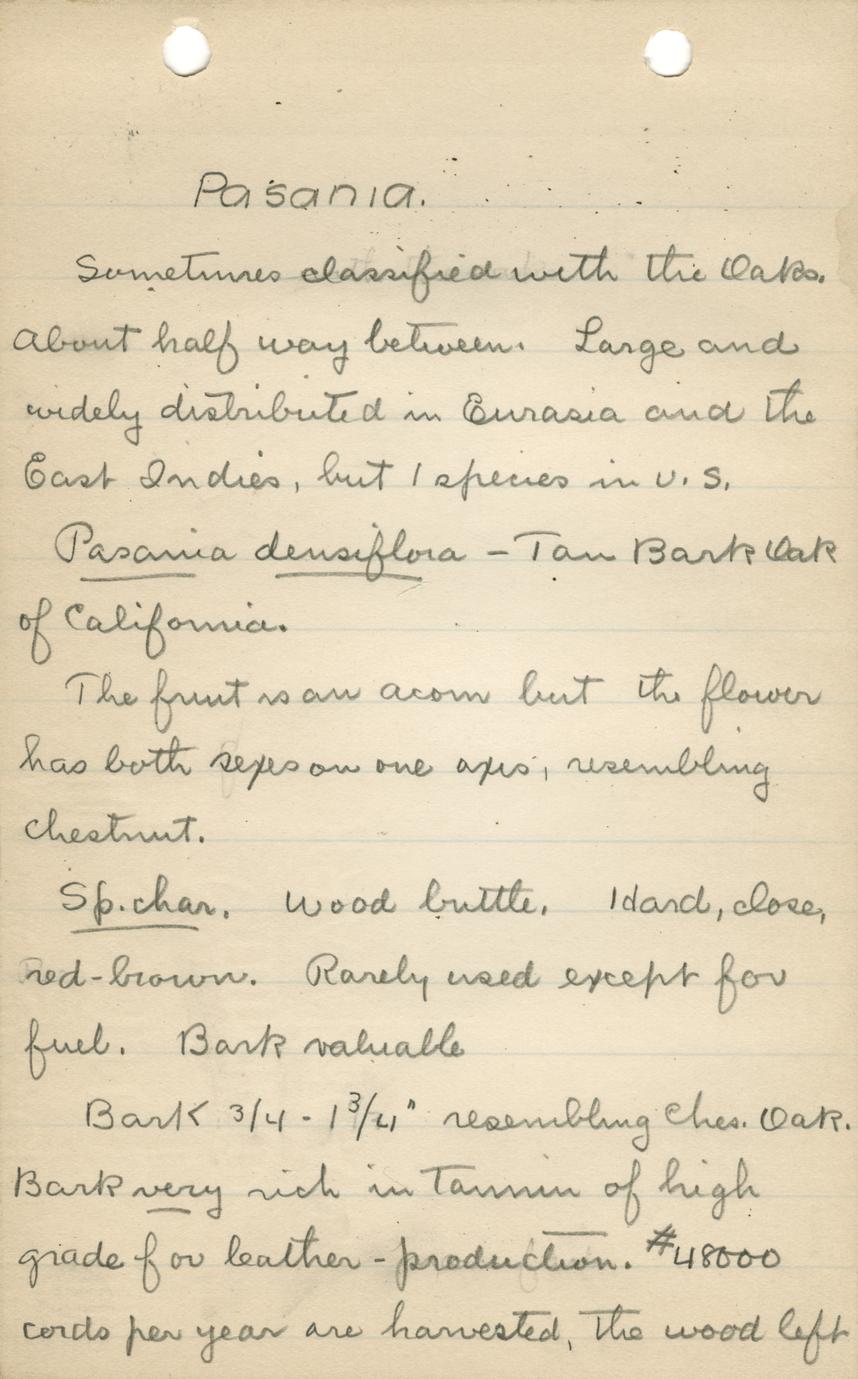 Pasania.
Sometimes classified with the Oaks.
About half way between. Large and
widely distributed in Eurasia and the
East Indies, but 1 species in U.S.
Pasania densiflora - Tan Bark Oak
of California.
The fruit is an acorn but the flower
has both sexes on one axis, resembling
chestnut.
Sp. char. Wood brittle. Hard, close,
red-brown. Rarely used except for
fuel. Bark valuable
Bark 3/4 - 1 3/4" resembling Ches. Oak.
Bark very rich in Tannin of high
grade for leather-production. #48000
cords per year are harvested, the wood left